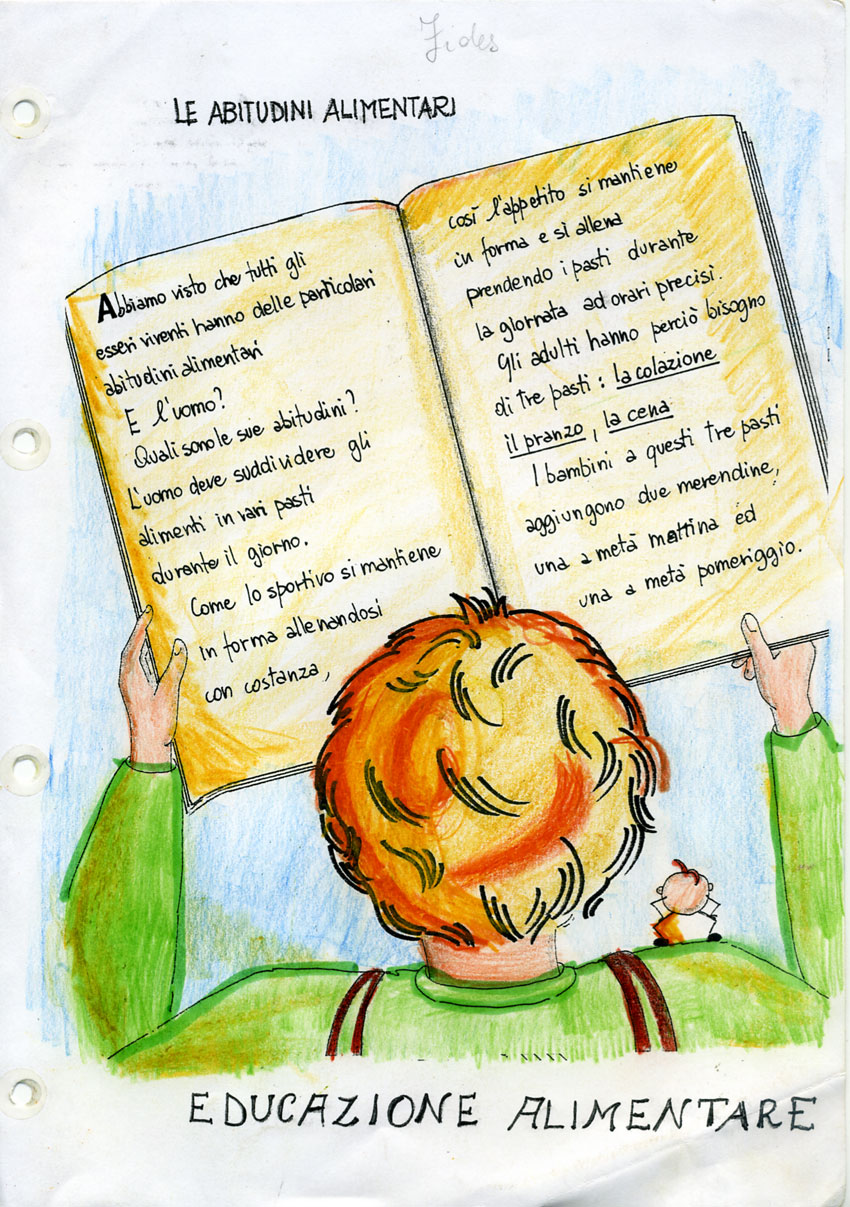 Fides
LE ABITUDINI ALIMENTARI
Abbiamo visto che tutti gli
esseri viventi hanno delle particolari
abitudini alimentari
E l'uomo?
Quali sono le sue abitudini?
L'uomo deve suddividere gli
alimenti in vari pasti
durante il giorno.
Come lo sportivo si mantiene
in forma allenandosi
con costanza,
così l'appetito si mantiene
in forma e sì allena
prendendo i pasti durante
la giornata ad orari precisi.
Gli adulti hanno perciò bisogno
di tre pasti: la colazione
il pranzo, la cena
I bambini a questi tre pasti
aggiungono due merendine,
una a metà mattina ed
una a metà pomeriggio.
EDUCAZIONE ALIMENTARE